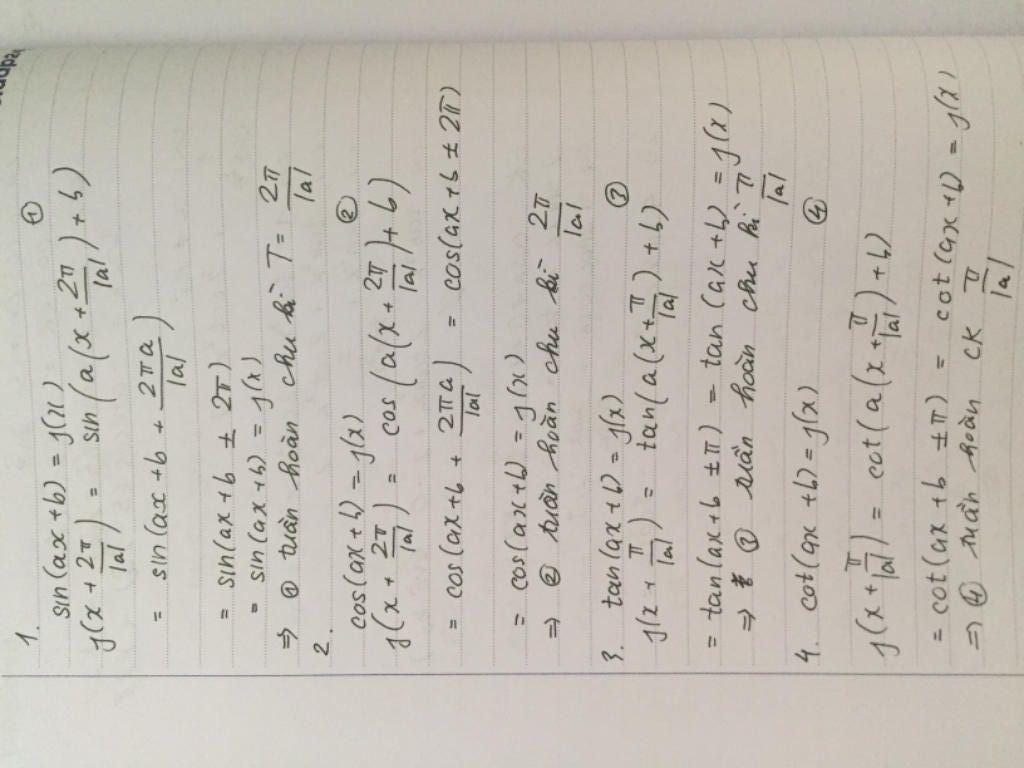 1. sin(ax+b) = f(x) ①
f(x + 2π/|a|) = sin(a(x + 2π/|a|) + b)
= sin(ax + b + 2πa/|a|)
= sin(ax + b ± 2π)
= sin(ax+b) = f(x)
⇒ ① tuần hoàn chu kì T = 2π/|a|
2. cos(ax+b) = f(x) ②
f(x + 2π/|a|) = cos(a(x + 2π/|a|) + b)
= cos(ax+b + 2πa/|a|) = cos(ax+b ± 2π)
= cos(ax+b) = f(x)
⇒ ② tuần hoàn chu kì 2π/|a|
3. tan(ax+b) = f(x) ③
f(x + π/|a|) = tan(a(x + π/|a|) + b)
= tan(ax+b ± π) = tan(ax+b) = f(x)
⇒ ③ tuần hoàn chu kì π/|a|
4. cot(ax+b) = f(x) ④
f(x + π/|a|) = cot(a(x + π/|a|) + b)
= cot(ax+b ± π) = cot(ax+b) = f(x)
⇒ ④ tuần hoàn CK π/|a|